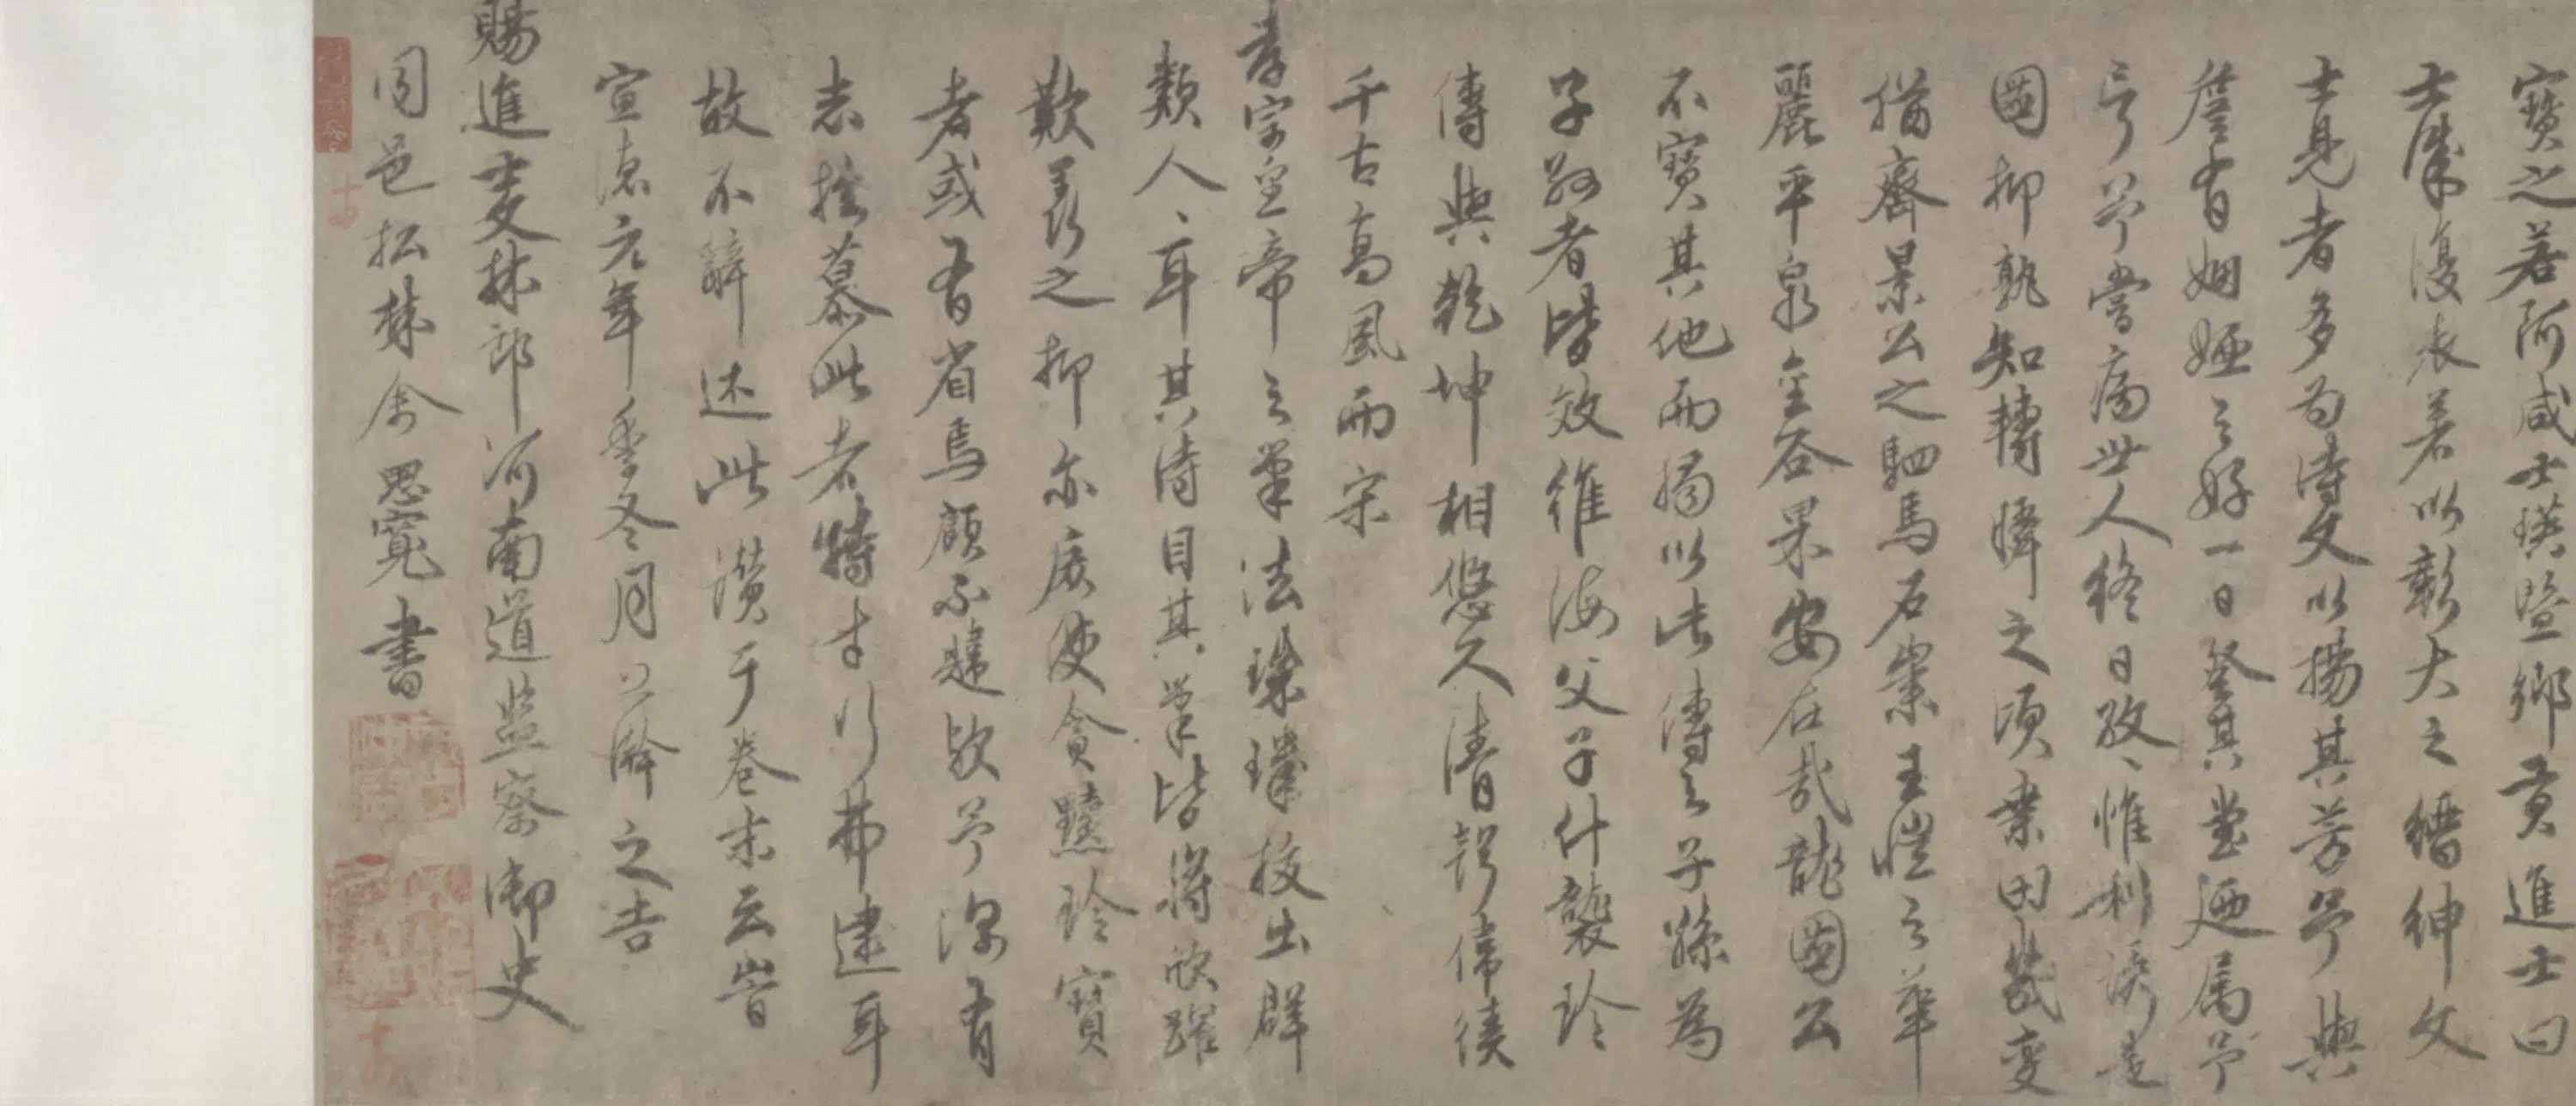 寶之若阮咸士瑛暨鄉貢進士曰
士濂復表著以彰大之縉紳文
士見者多為詩文以揚其芳予與
詹有姻婭之好一日登其堂廼属予
言予嘗痛世人終日孜、惟利誘是
圖抑孰知轉瞬之頃桑田幾變
猶齊景公之駟馬石崇王愷之華
麗平泉金谷果安在哉龍圖公
不寶其他而獨以此傳之子孫為
子孫者皆效維海父子什襲珍
傳與乾坤相悠久清譽偉績
千古高風而宋
孝宗皇帝之筆法瑰瑋挍出群
類人、耳其詩目其筆皆將欣躍
歎羨之抑亦庶使貪黷珍寶
者或有省焉顧不韙歟予深有
志於慕此者特才行弗逮耳
故不辭述此讚于卷末云峕
宣德元年季冬月 澣之吉
賜進士文林郎河南道監察御史
同邑松林余思寬書